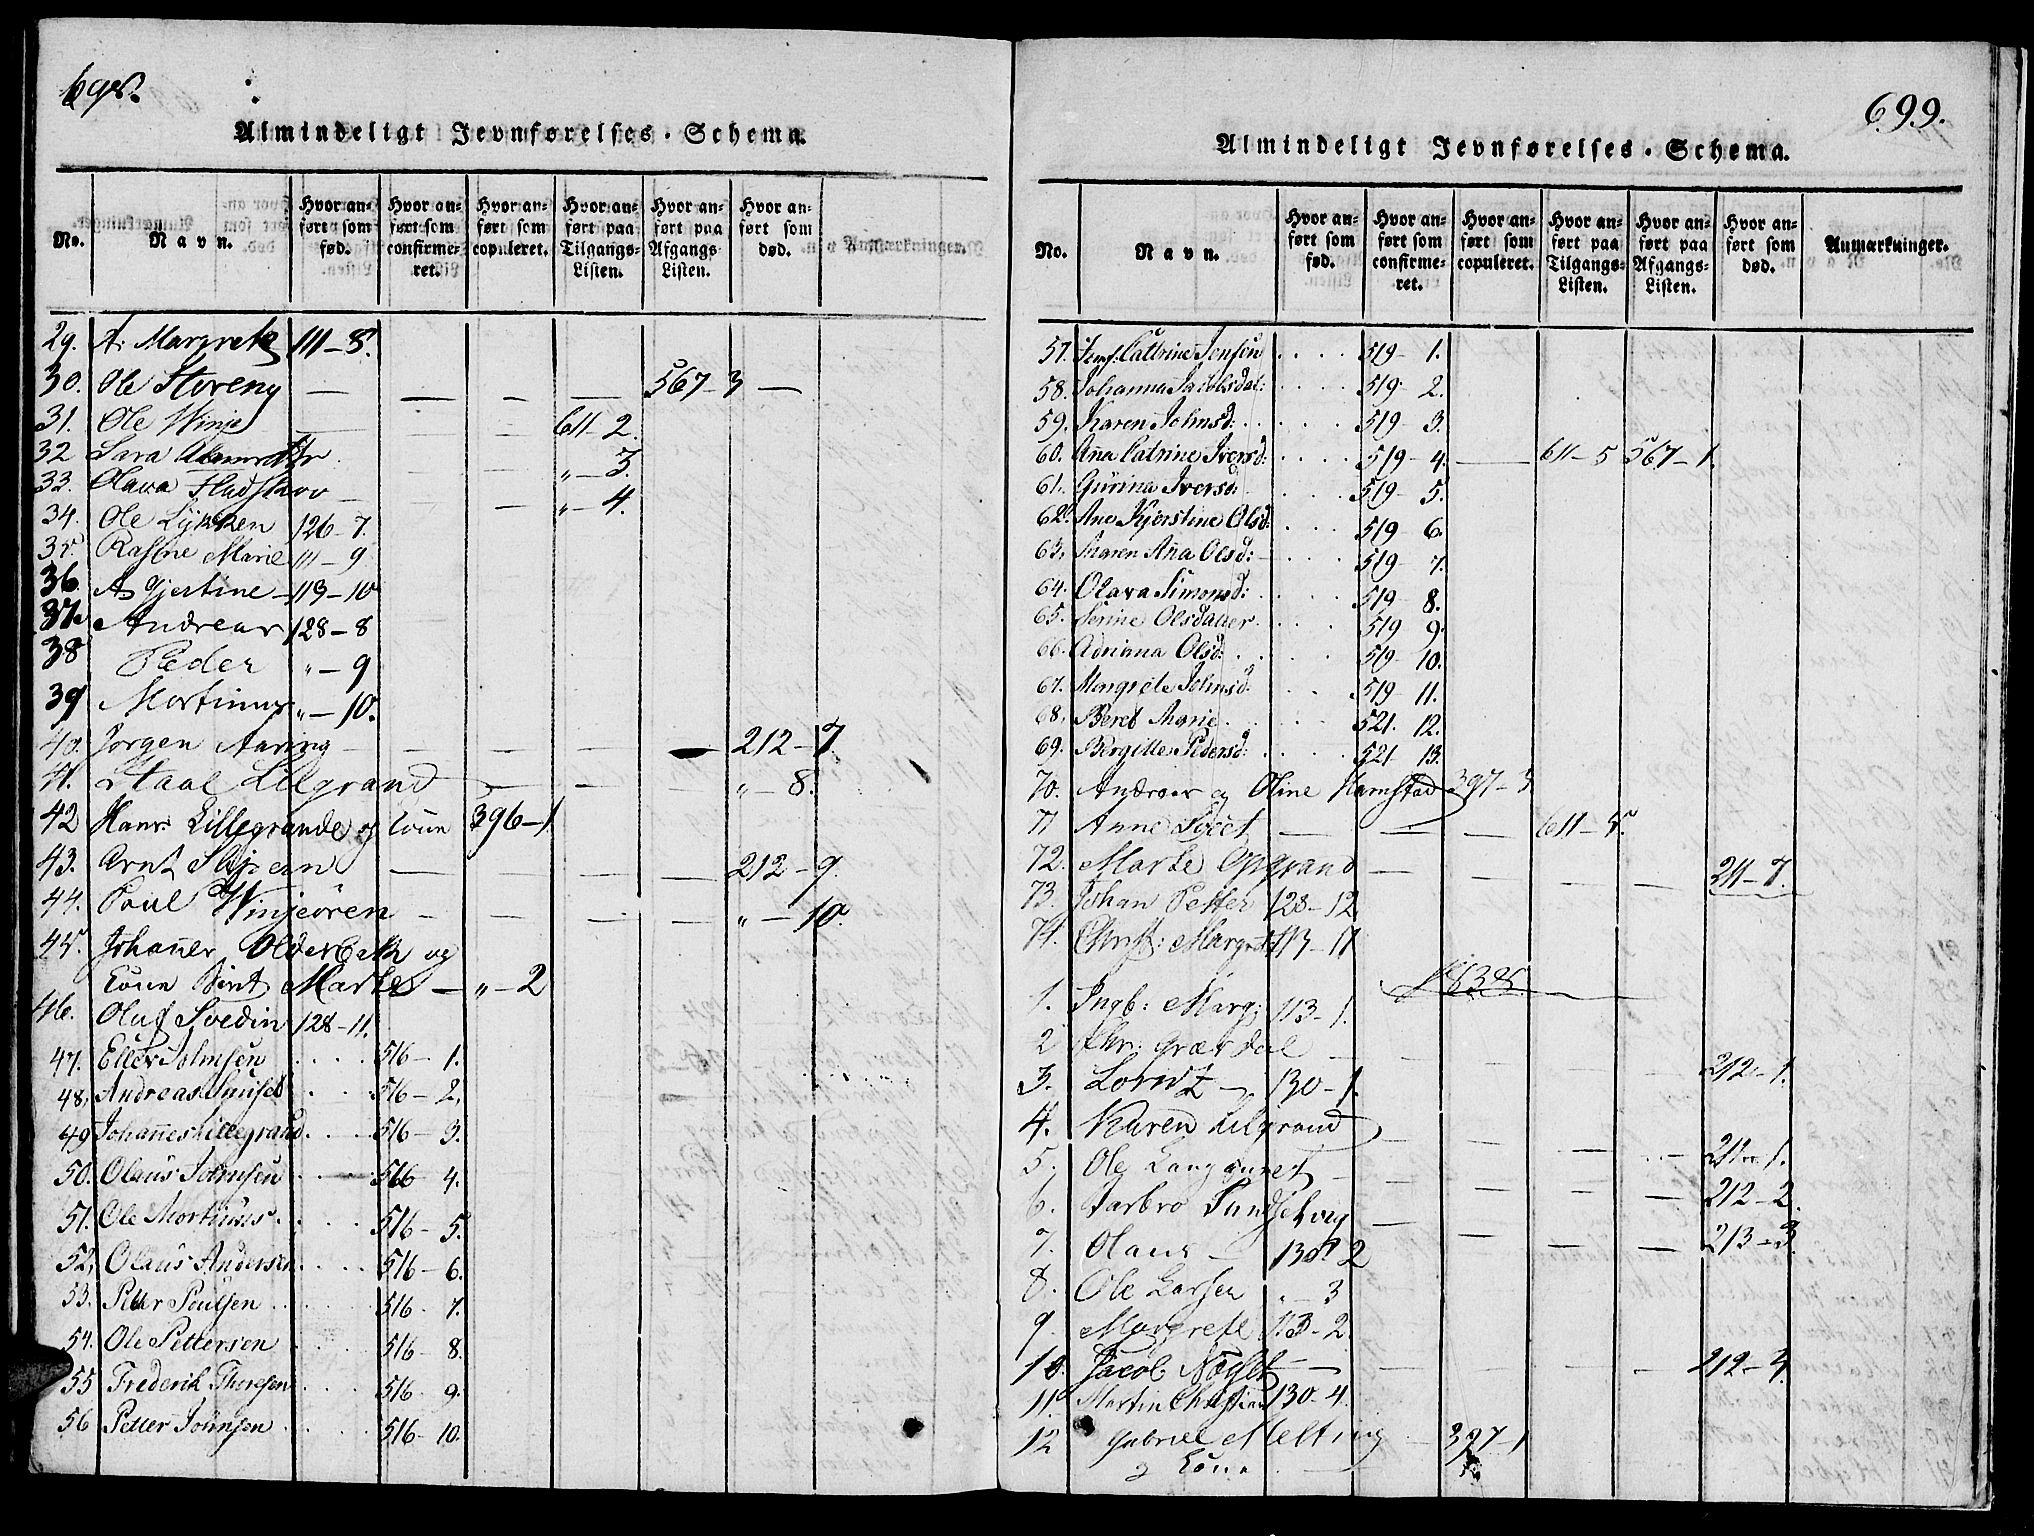 698.
Almindeligt Jevnførelses-Schema.
No. Navn. Hvor anført som fød. Hvor anført som confirmeret. Hvor anført som copuleret. Hvor anført paa Tilgangs-Listen. Hvor anført paa Afgangs Listen. Hvor anført som død. Anmærkninger.
29. A: Margrete 111-8.
30. Ole Storeng 567-3
31. Ole Winje 611-2.
32 Sara „-3.
33. Olava Fladskov „-4.
34. Ole Lykken 126-7.
35. Rasine Marie 111-9
36. A Gjertine 113-10
37. Andreas 128-8
38 Peder „-9
39 Mortinus „-10.
40. Jørgen Aaring 212-7.
41. Staal Lilgrand „-8.
42 Hans Lillegrande og Kone 396-1.
43. Arnt 212-9.
44. Poul Winjeøren „-10.
45. Johanes Olderbek og
Kone Birit Marta „-2
46. Oluf Svedin 128-11.
47. Eller Johnsen 516-1.
48, Andreas 516-2,
49 Johañes Lillegrand 516-3.
50. Olaus Johnsen 516 4.
51. Ole Mortinus 516-5.
52, Olaus Andersen 516-6.
53. Petter Poulsen 516-7.
54. Ole Pettersen 516-8.
55 Frederik Theresen 516-9.
56 Petter Johnsen 516-10.
699.
Almindeligt Jevnførelses-Schema.
No. Navn. Hvor anført som fød. Hvor anført som confirmeret. Hvor anført som copuleret. Hvor anført paa Tilgangs-Listen. Hvor anført paa Afgangs-Listen. Hvor anført som død. Anmærkninger.
57. Jomf. Cathrine Jensen 519-1.
58. Johanna Jacobsdat: 519-2.
59. Karen Johnsd: 519-3.
60. Aña Catrine Iversd: 519-4. 611-5 567-1.
61. Gurina Iversd: 519-5.
62. Ane Kjerstine Olsd: 519 6.
63. Maren Aña Olsd: 519-7.
64. Olava Simonsd: 519-8.
65. Serine Olsdatter 519-9.
66. Adriana Olsd: 519-10.
67. Margrete Johnsd: 519-11.
68. Beret Marie 521. 12.
69. Bergitte Pedersd: 521. 13.
70. Andreas og Oline Hamstad 397-3
71 Anne 611-5.
72. Marte Opgrand 211-7.
73. Johan Petter 128-12
74. Christ: Margret 113-11
1835.
1. Ingb: Marg: 113-1.
2 Chr: Græsdal 212-1.
3. Lorntz 130-1.
4. Karen Lilgrand 211-1.
5. Ole 212-2.
6. Barbro 213-3.
7. Olaus 130-2
8. Ole Larsen „-3
9. Margrete 113-2.
10. Jacob 212-4.
11. Martin Christian 130-4.
12 Gabriel Melting 397-1
og Kone